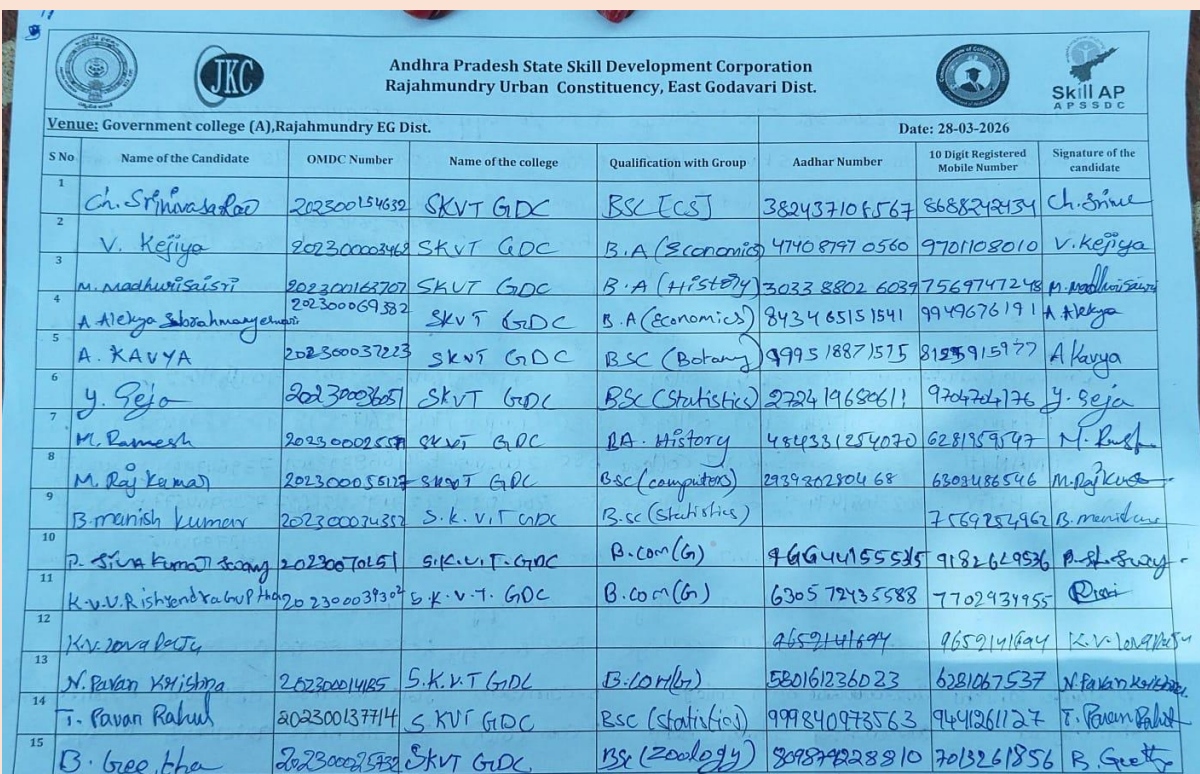 JKC
Andhra Pradesh State Skill Development Corporation
Rajahmundry Urban Constituency, East Godavari Dist.
Skill AP
APSSDC
Venue: Government college (A),Rajahmundry EG Dist. Date: 28-03-2026
S No Name of the Candidate OMDC Number Name of the college Qualification with Group Aadhar Number 10 Digit Registered Mobile Number Signature of the candidate
1 Ch. Srinivasa Rao 202300154632 SKVT GDC BSC [CS] 8688242434 Ch. Srine
2 V. Kejiya 202300003468 SKVT GDC B.A (Economics) 47408797 0560 9701108010 V. Kejiya
3 M. Madhurisaisri 202300163707 SKVT GDC B.A (History) 3033 8802 6039 7569747248
4 A Alekya 202300069382 SKVT GDC B.A (Economics) 843465151541 9949676191 A Alekya
5 A. KAVYA 202300037223 SKVT GDC BSC (Botany) 999518871575 A Kavya
6 Y. Geja SKVT GDC BSC (Statistics) 272419680611 9704704176 Y. Geja
7 M. Ramesh SKVT GDC BA. History 484331254070 6281359547
8 M. Raj Kumar SKVT GDC B.SC (computers) 2939302804 68 6303486546
9 B. manish kumar 202300034352 S.K.V.T GDC B.sc (Statistics) 7569254962
10 S.K.V.T. GDC B.com (G)
11 K.V.V. 202300039302 S.K.V.T. GDC B.com (G) 6305 72435588 7702934955
12 9652141694 9652141694
13 N. Pavan Krishna S.K.V.T GDC B.com (G) 580161236023 6281067537 N. Pavan Krishna
14 T. Pavan Rahul 202300137714 S KVT GDC BSC (statistics) 999840973563 9441261127 T. Pavan Rahul
15 B. Geetha 202300025732 SKVT GDC BSc (Zoology) 7013261856 B. Geetha